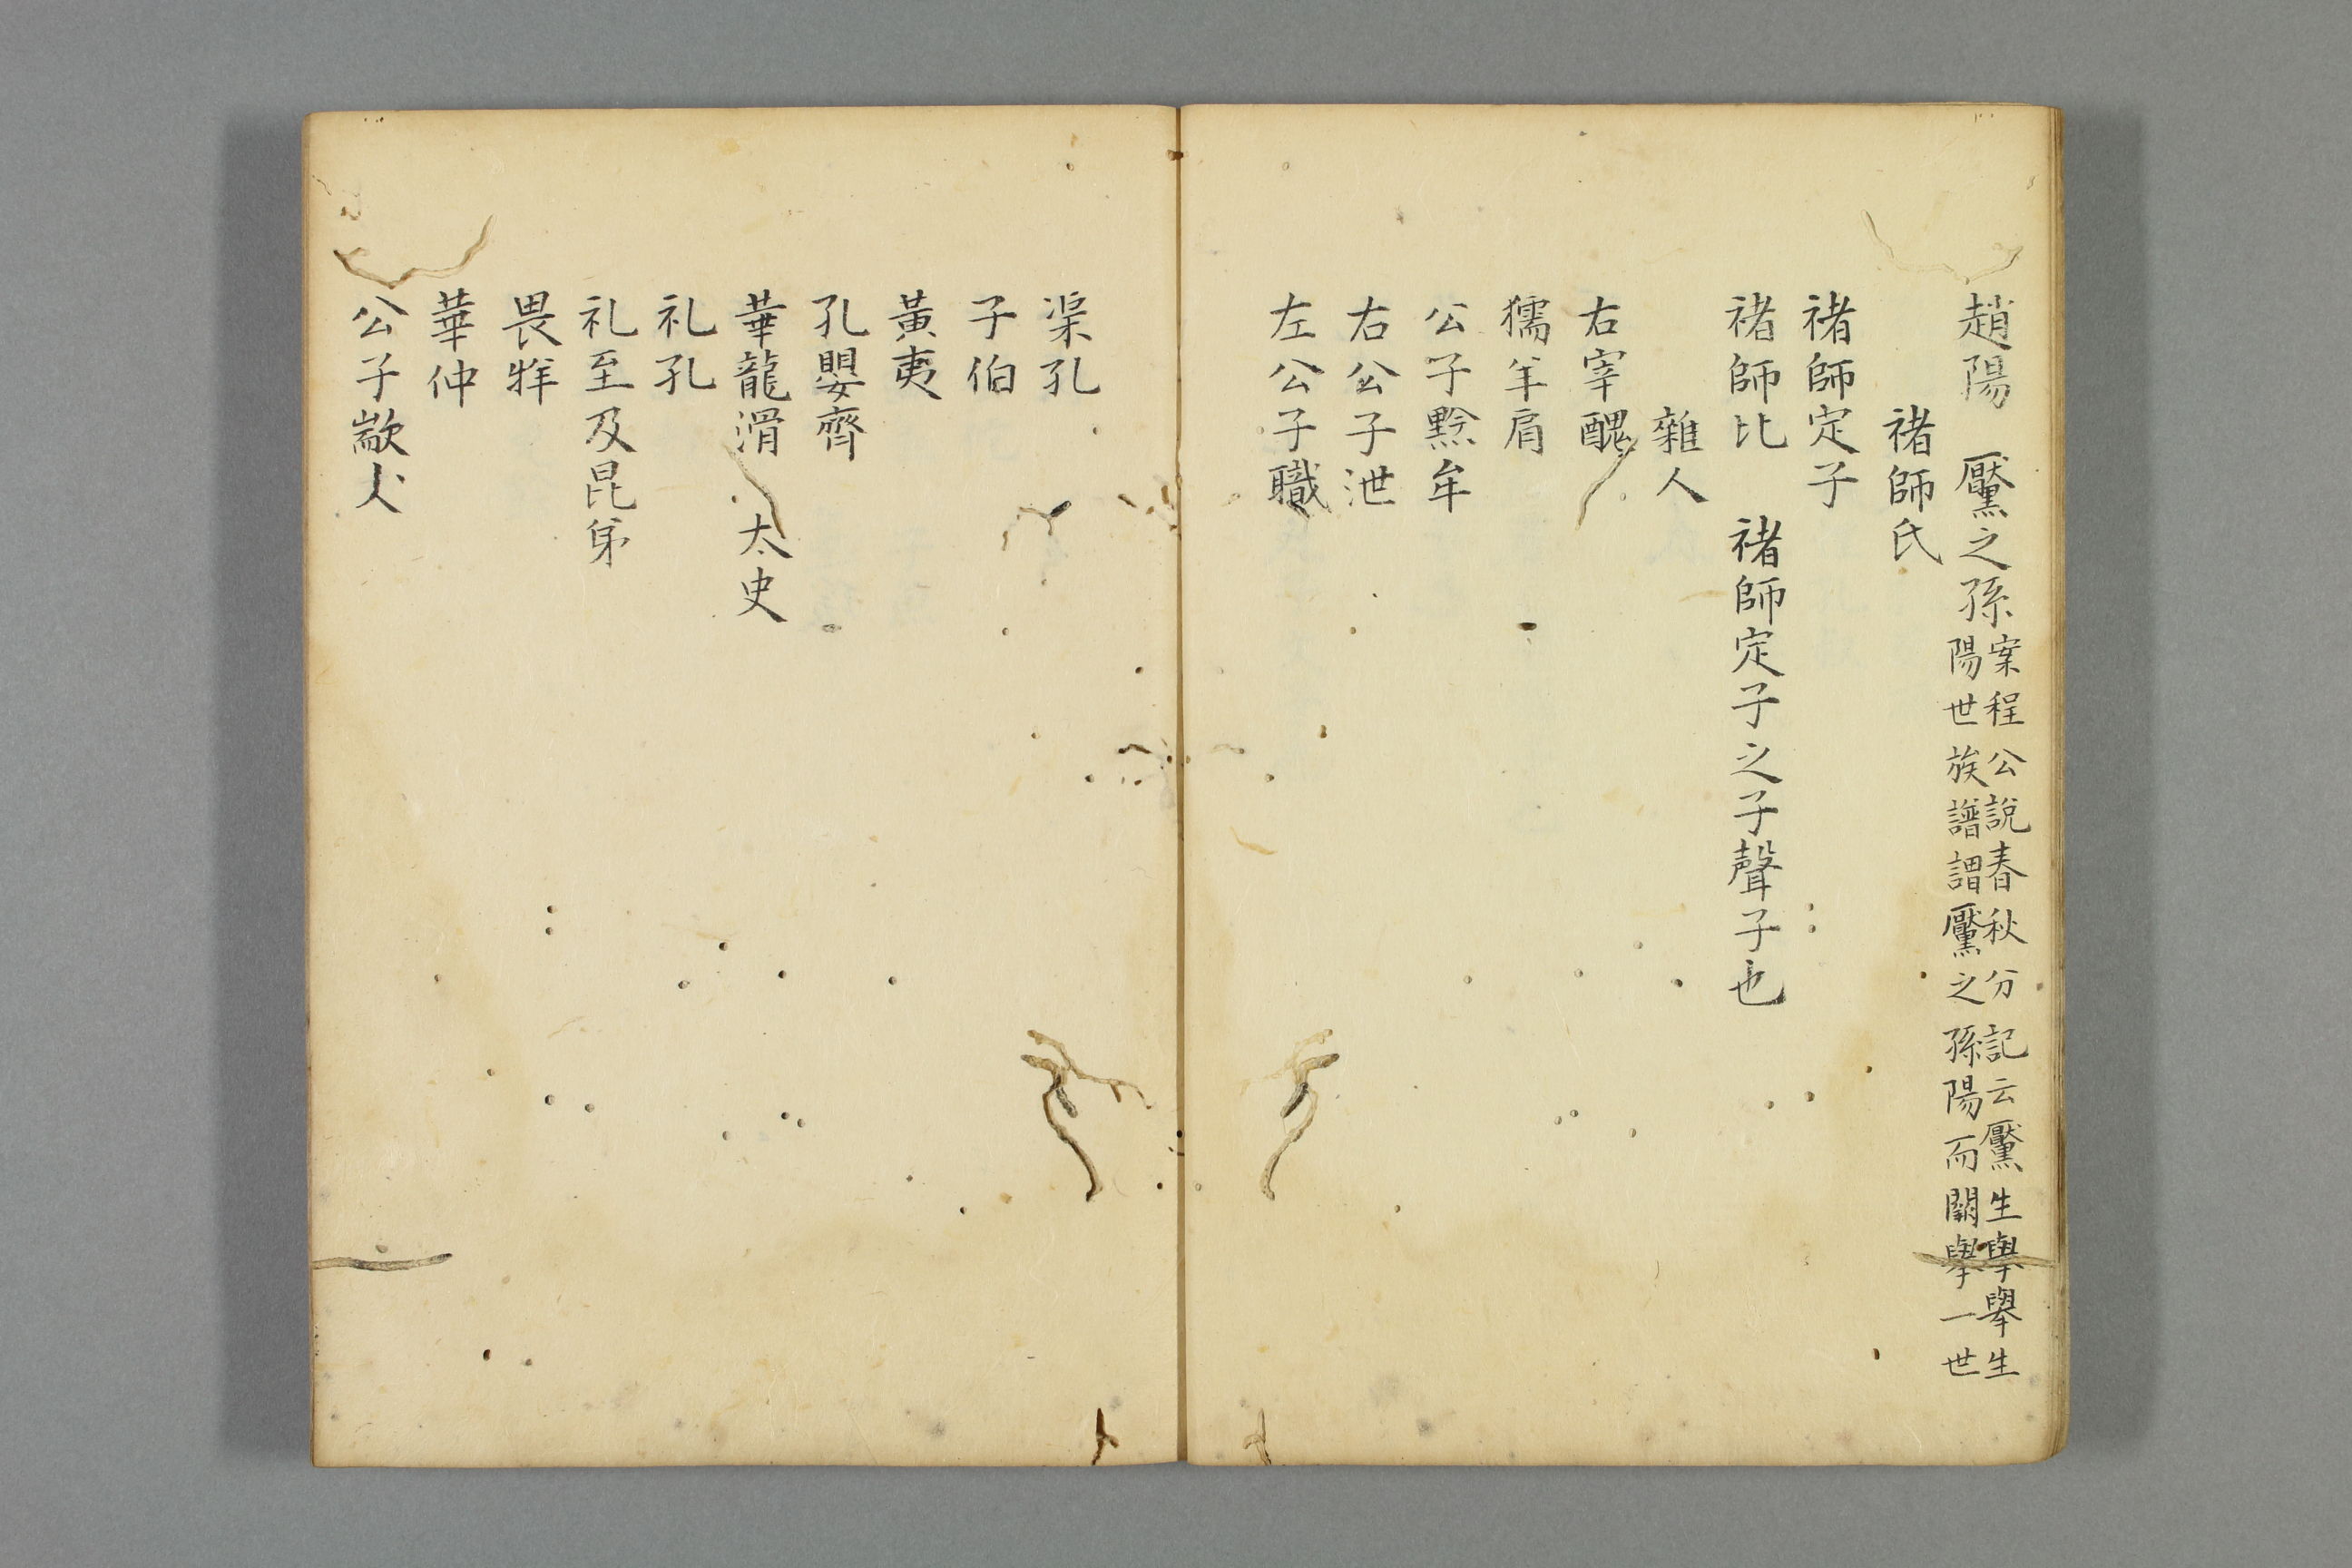 趙陽 黶之孫 案程公說春秋分記云黶生舉舉生
陽世族譜謂黶之孫陽而闕舉一世
褚師氏
褚師定子
褚師比 褚師定子之子聲子也
雜人
右宰醜
獳羊肩
公子黔牟
右公子泄
左公子職
渠孔
子伯
黃夷
孔嬰齊
華龍滑 太史
礼孔
礼至及昆弟
畏牂
華仲
公子歂犬